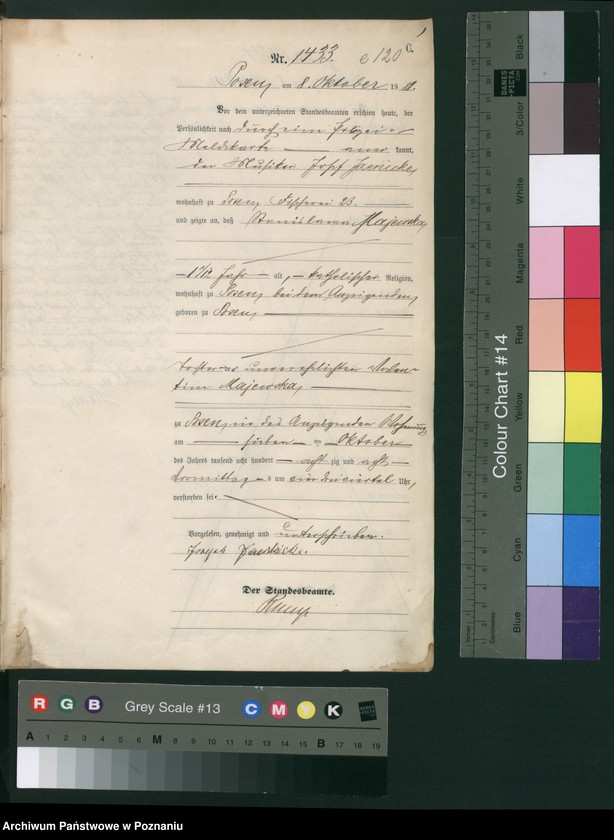 C.
Nr. 1433. c 120
Posen, am 8. Oktober 18
Vor dem unterzeichneten Standesbeamten erschien heute, der
Persönlichkeit nach durch eine Polizei-
Meldekarte — aner kannt,
der Musiker Josef
wohnhaft zu Posen, Fischerei 23.
und zeigte an, daß Stanislawa Majewska,
Jahr — alt, — katholischer Religion,
wohnhaft zu Posen, bei dem Anzeigenden,
geboren zu Posen,
Tochter der unverehelichten
Majewska,
zu Posen, in des Anzeigenden Wohnung
am — sieben — ten Oktober
des Jahres tausend acht hundert — acht zig und acht —
Vormittag s um ein dreiviertel Uhr,
verstorben sei.
Vorgelesen, genehmigt und unterschrieben.
Der Standesbeamte.
Colour Chart #14
Blue Cyan Green Yellow Red Magenta White 3/Color Black
DANES
PICTA
.COM
Inches
Centimetres
R G B Grey Scale #13 C M Y K
A 1 2 3 4 5 6 M 8 9 10 11 12 13 14 15 B 17 18 19
Archiwum Państwowe w Poznaniu